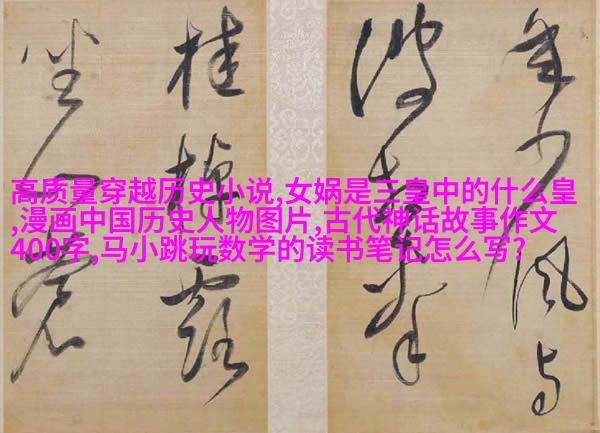 高质量穿越历史小说,女娲是三皇中的什么皇
,漫画中国历史人物图片,古代神话故事作文
400字,马小跳玩数学的读书笔记怎么写?
少風与
波
桂棹露